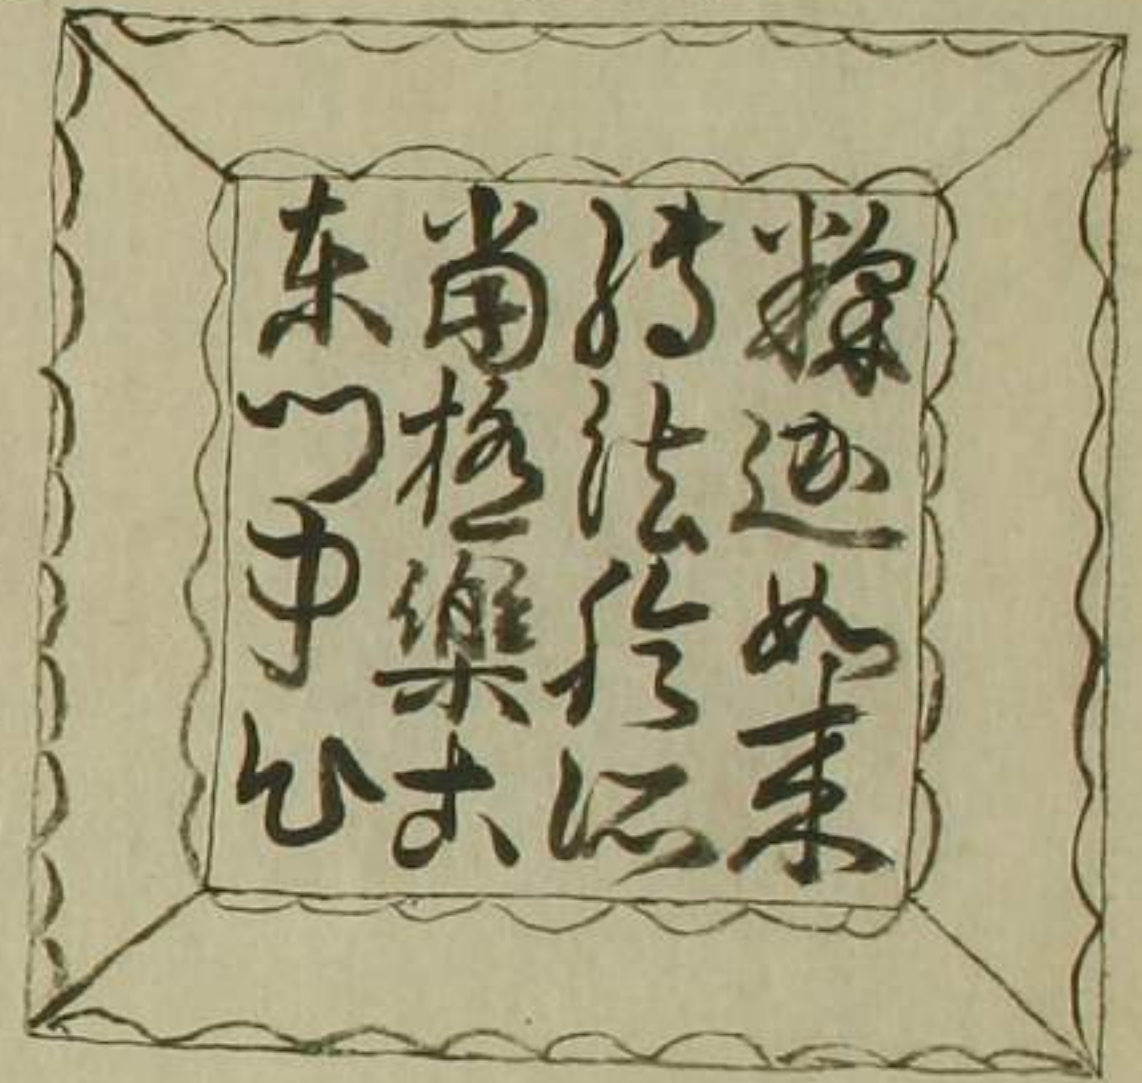 釋迦如来
轉法輪所
當極樂土
東門中心